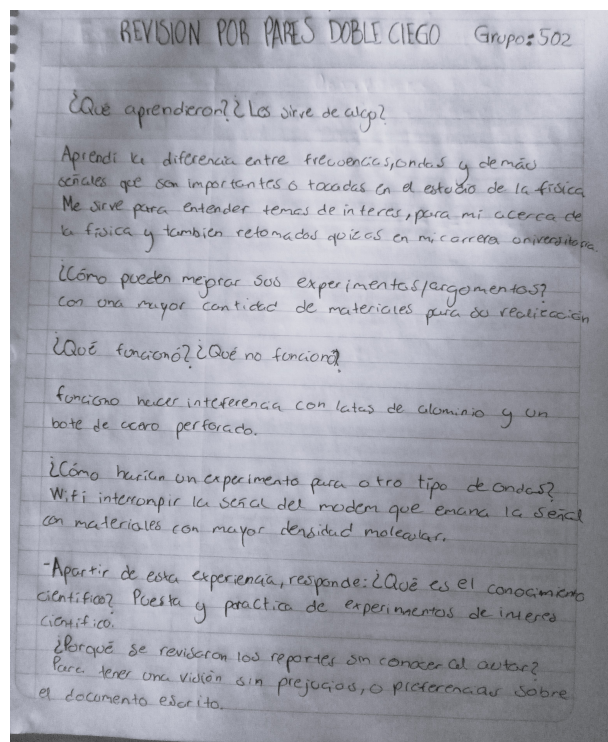 REVISION POR PARES DOBLE CIEGO Grupo: 502
¿Qué aprendieron? ¿Les sirve de algo?
Aprendi la diferencia entre frecuencias, ondas y demás
señales que son importantes o tocadas en el estudio de la física
Me sirve para entender temas de interes, para mi acerca de
la física y tambien retomados quizas en mi carrera universitaria.
¿Cómo pueden mejorar sus experimentos/argumentos?
con una mayor cantidad de materiales para su realización
¿Qué funcionó? ¿Qué no funcionó?
funciono hacer inteferencia con latas de aluminio y un
bote de acero perforado.
¿Cómo harian un experimento para otro tipo de ondas?
Wifi interronpir la señal del modem que emana la señal
con materiales con mayor densidad molecular.
-Apartir de esta experiencia, responde: ¿Qué es el conocimiento
científico? Puesta y practica de experimentos de interes
cientifico.
¿Porqué se revisaron los reportes sin conocer al autor?
Para tener una visión sin prejucios, o preferencias sobre
el documento escrito.